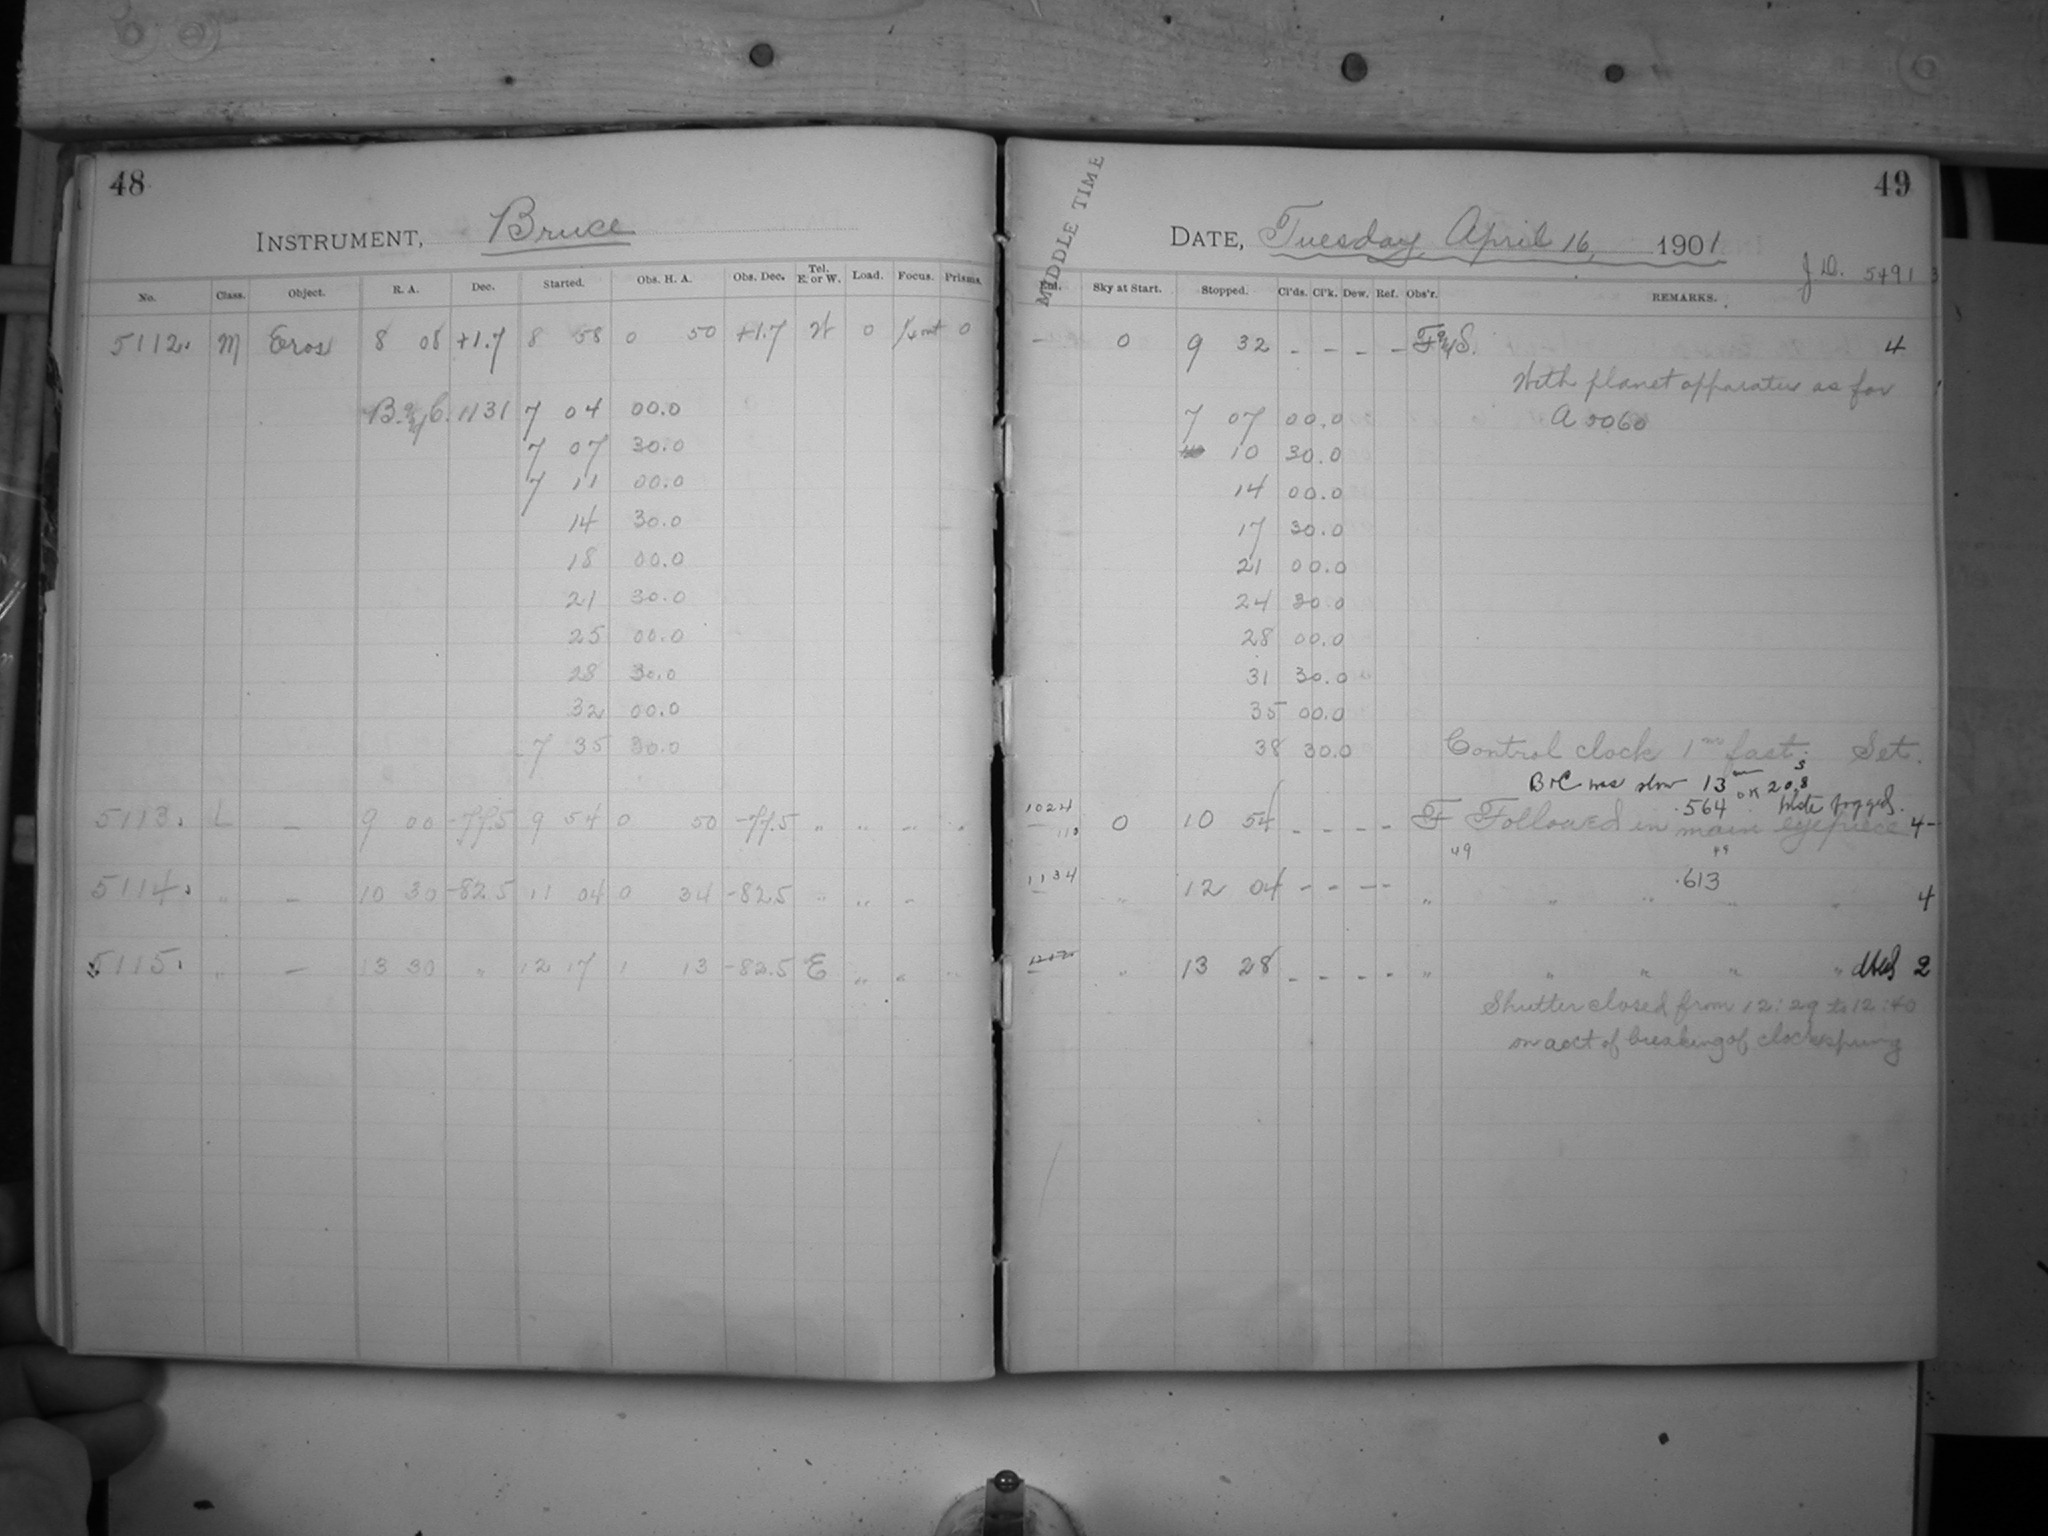 48
INSTRUMENT, Bruce
No. Class. Object. R. A. Dec. Started. Obs. H. A. Obs. Dec. Tel. E. or W. Load. Focus. Prisms.
5112. M Eros 8 08 +1.7 8 58 0 50 +1.7 W 0 0
B. & C. 1131 7 04 00.0
7 07 30.0
7 11 00.0
14 30.0
18 00.0
21 30.0
25 00.0
28 30.0
32 00.0
7 35 30.0
5113. L — 9 00 -77.5 9 54 0 50 -77.5 " " " "
5114. " — 10 30 -82.5 11 04 0 34 -82.5 " " "
5115. " — 13 30 " 12 17 1 13 -82.5 E " " "
49
MIDDLE TIME
DATE, Tuesday, April 16, 1901
J.D. 5491
Sky at Start. Stopped. Cl'ds. Cl'k. Dew. Ref. Obs'r. REMARKS.
— 0 9 32 - - - - F & S. 4
With planet apparatus as for
7 07 00.0 A 5060
10 30.0
14 00.0
17 30.0
21 00.0
24 30.0
28 00.0
31 30.0
35 00.0
38 30.0 Control clock 1 m fast. Set.
B & C was slow 13 m 20.8 s
OK
1024 .564 plate fogged.
0 10 54 - - - - F Followed in main eyepiece 4-
49
1134 .613
" 12 04 - - - - " " " " " 4
" 13 28 - - - - " " " " " 2
Shutter closed from 12:29 to 12:40
on acct of breaking of clock spring